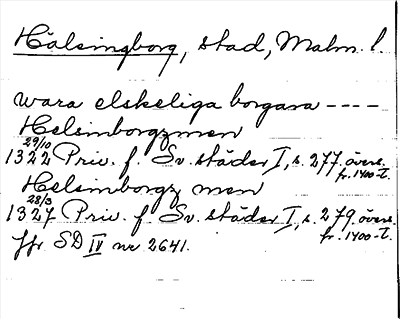 Hälsingborg, stad, Malm. l.
wara elskeliga borgara ----
Helsinborgzmen
29/10
1322 Priv. f. Sv. städer I, s. 277. övers. fr. 1400-t.
Helsinborgz men
28/3
1327 Priv. f. Sv. städer I, s. 279. övers. fr. 1400-t.
Jfr SD IV nr 2641.